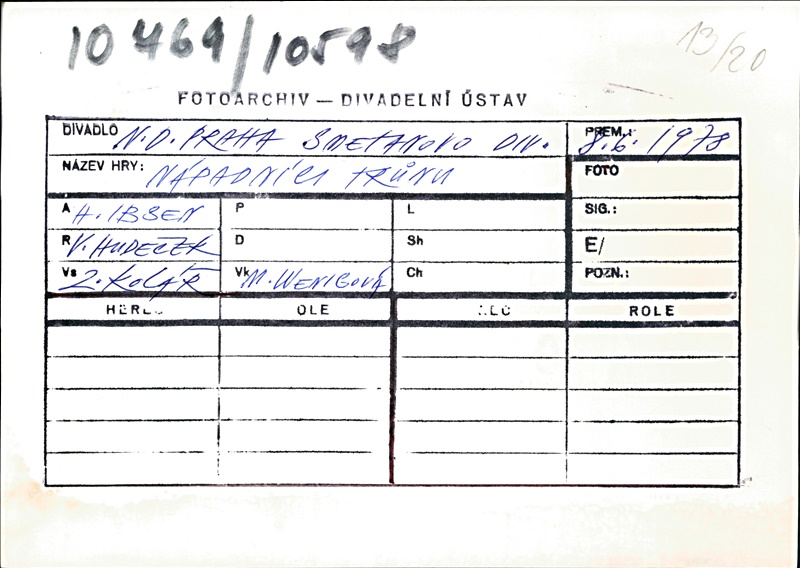 10469/10598
13/20
FOTOARCHIV — DIVADELNÍ ÚSTAV
DIVADLO N.D. PRAHA SMETANOVO DIV. PREM.: 8.6. 1978
NÁZEV HRY: NÁPADNÍCI TRŮNU FOTO
A H. IBSEN P L SIG.:
R V. HUDEČEK D Sh E/
Vs Z. KOLÁŘ Vk M. WENIGOVÁ Ch POZN.:
HEREC OLE ROLE